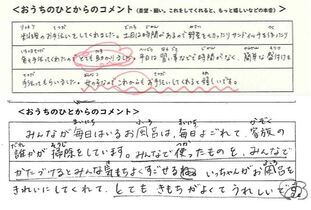 <おうちのひとからのコメント>（要望・願い。これをしてくれると、もっと嬉しいなどの本音）
お手伝いをしてくれました。土日は時間があるので野菜を
を手伝ってくれたので、とても助かりました。平日は習い事などで時間がなく、簡単な盛付けを
手伝ってもらいました。これからもお手伝いしてくれると嬉しいです。
<おうちのひとからのコメント>
みんなが毎日はいるお風呂は、毎日よごれて、家族の
誰かが掃除をしています。みんなで使ったものを、みんなで
かたづけるとみんな気持ちよくすごせるね。いっちゃんがお風呂を
きれいにしてくれて、とてもきもちがよくてうれしいです。